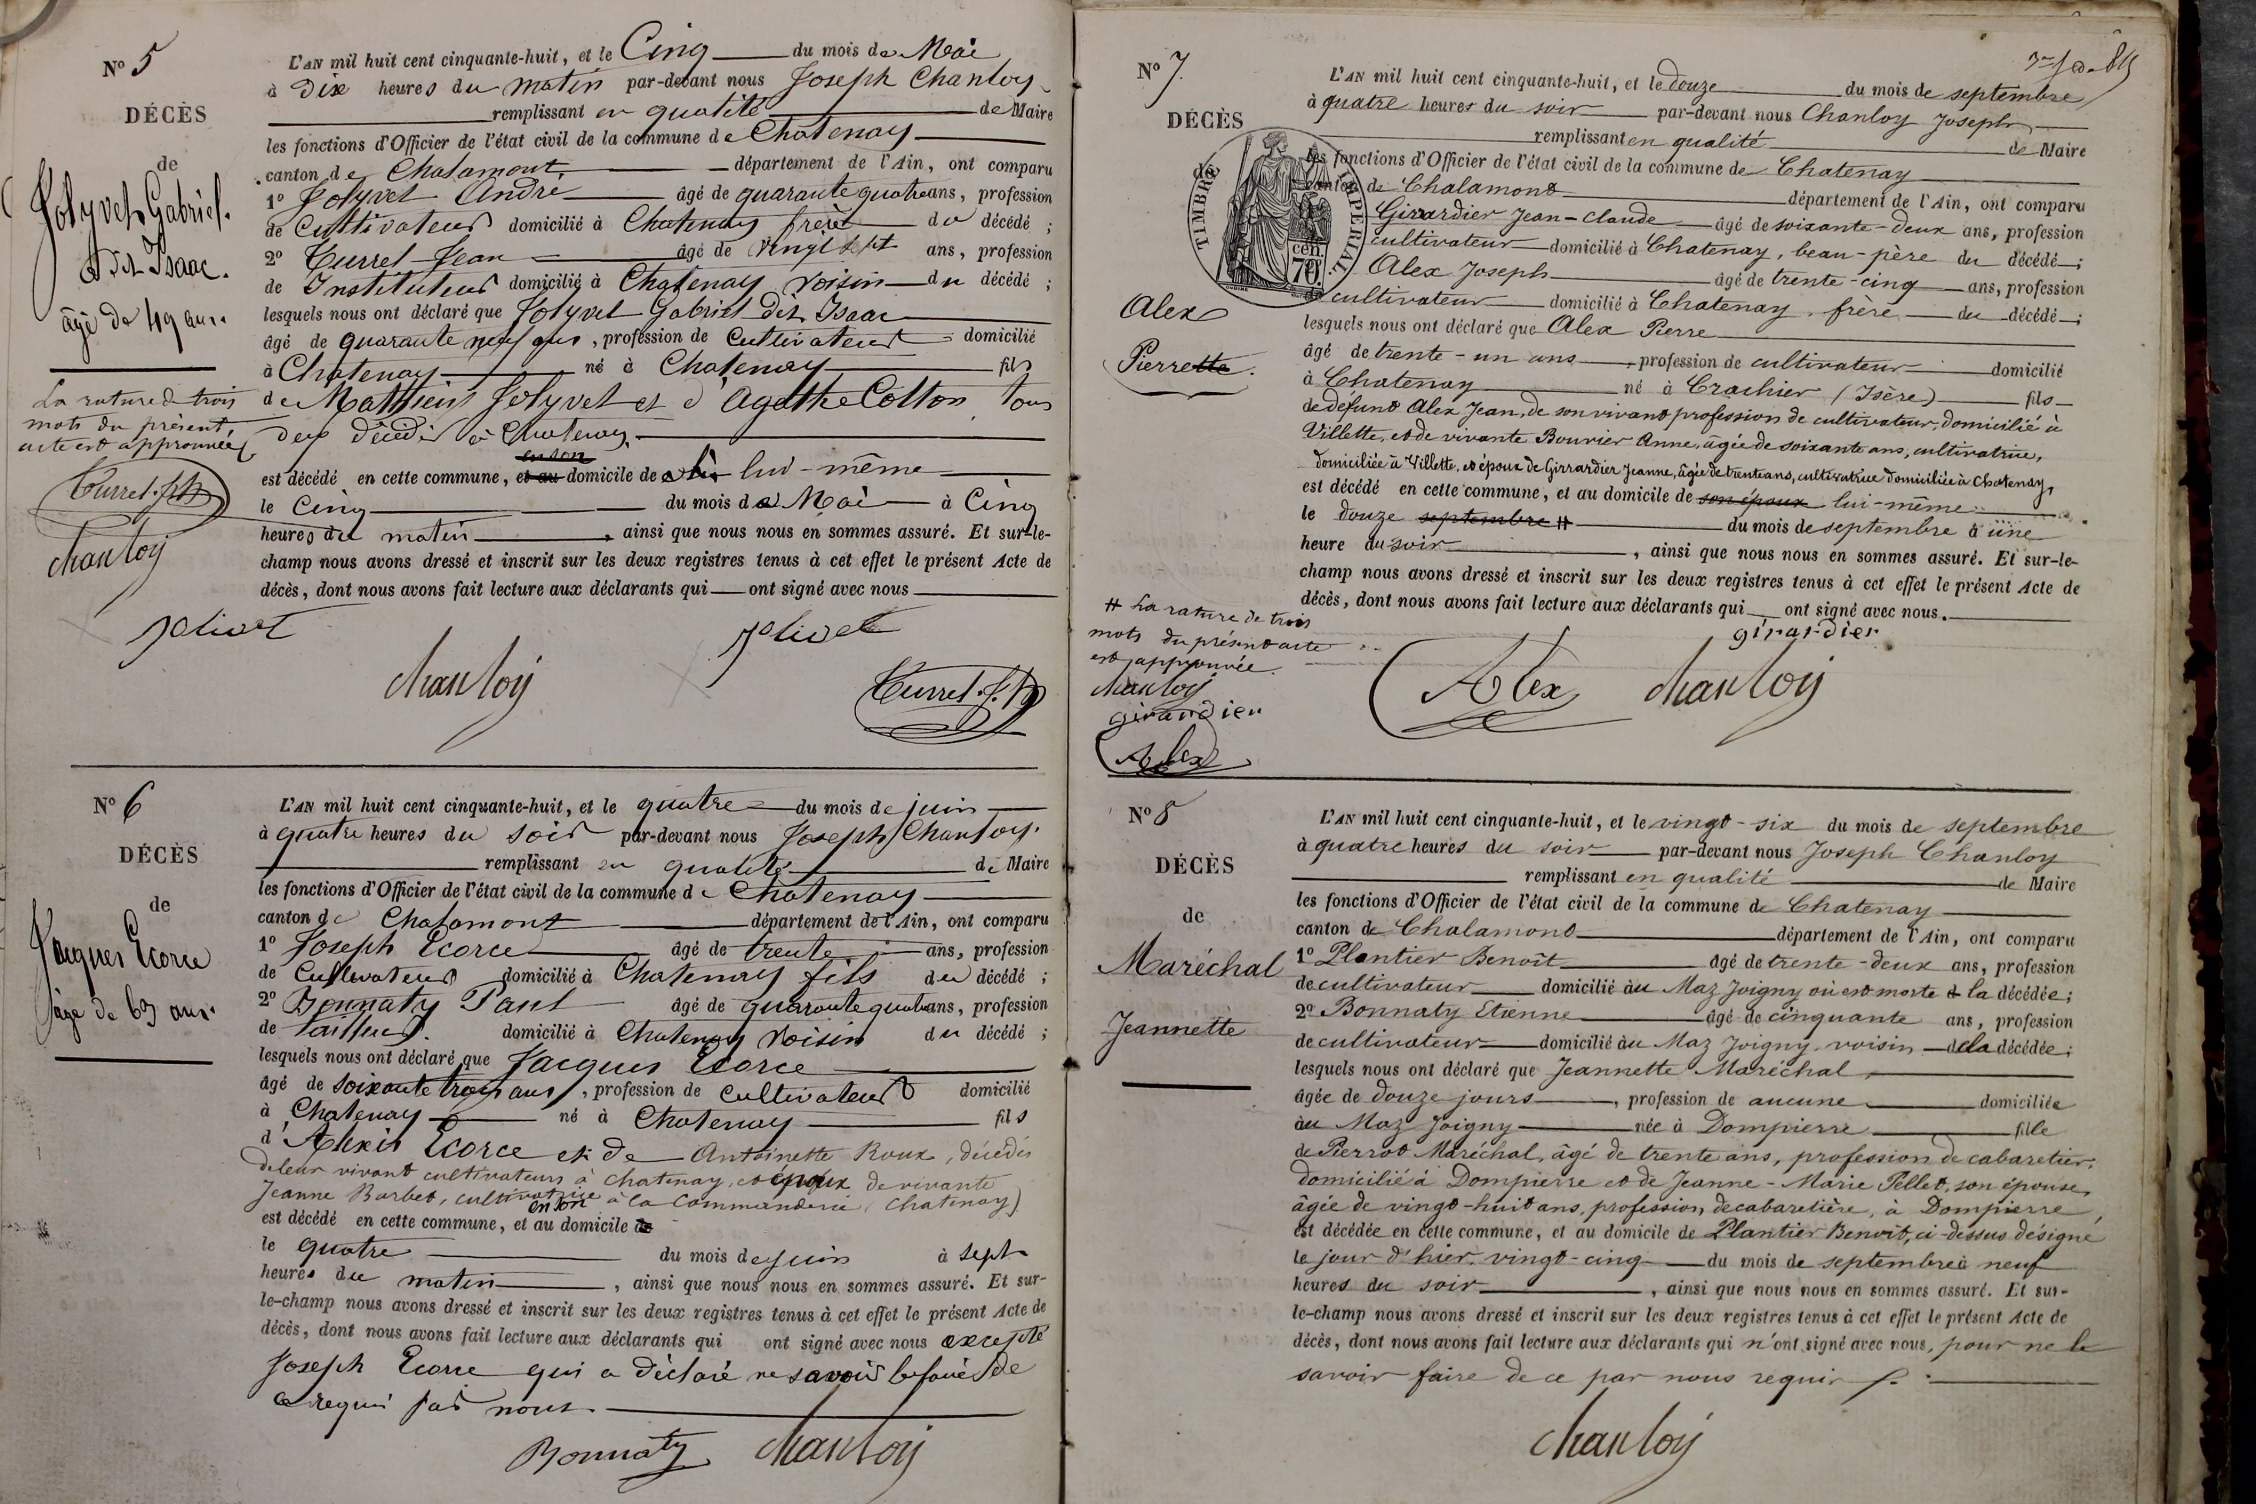 Nº 5
DÉCÈS
de
Jolyvet Gabriel.
dit Isaac.
âgé de 49 ans.
La rature de trois
mots du présent
acte est approuvée
Turrel
Chanloy
L'AN mil huit cent cinquante-huit, et le Cinq du mois de Mai
à Dix heures du matin par-devant nous Joseph Chanloy
remplissant en qualité de Maire
les fonctions d'Officier de l'état civil de la commune de Chatenay
canton de Chalamont département de l'Ain, ont comparu
1º Jolyvet André âgé de quarante quatre ans, profession
de Cultivateur domicilié à Chatenay frère du décédé ;
2º Turrel Jean âgé de vingt sept ans, profession
de Instituteur domicilié à Chatenay voisin du décédé ;
lesquels nous ont déclaré que Jolyvet Gabriel dit Isaac
âgé de quarante neuf ans, profession de Cultivateur domicilié
à Chatenay né à Chatenay fils
de Matthieu Jolyvet et d'Agathe Cotton tous
deux décédés à Chatenay.
en son
est décédé en cette commune, et au domicile de lui-même
le Cinq du mois de Mai à Cinq
heures du matin, ainsi que nous nous en sommes assuré. Et sur-le-
champ nous avons dressé et inscrit sur les deux registres tenus à cet effet le présent Acte de
décès, dont nous avons fait lecture aux déclarants qui ont signé avec nous
Jolivet
Chanloy
Jolivet
Turrel
Nº 6
DÉCÈS
de
Jacques Ecorce
âgé de 63 ans.
L'AN mil huit cent cinquante-huit, et le quatre du mois de juin
à quatre heures du soir par-devant nous Joseph Chanloy.
remplissant en qualité de Maire
les fonctions d'Officier de l'état civil de la commune de Chatenay
canton de Chalamont département de l'Ain, ont comparu
1º Joseph Ecorce âgé de trente ans, profession
de Cultivateur domicilié à Chatenay fils du décédé ;
2º Bonnaty Paul âgé de quarante quatre ans, profession
de tailleur. domicilié à Chatenay voisin du décédé ;
lesquels nous ont déclaré que Jacques Ecorce
âgé de soixante trois ans, profession de Cultivateur domicilié
à Chatenay né à Chatenay fils
d'Alexis Ecorce et de Antoinette Roux, décédés
de leur vivant cultivateurs à Chatenay, et époux de vivante
Jeanne Barbet, cultivatrice à la Commanderie (Chatenay)
en son
est décédé en cette commune, et au domicile de
le quatre du mois de juin à sept
heures du matin, ainsi que nous nous en sommes assuré. Et sur-
le-champ nous avons dressé et inscrit sur les deux registres tenus à cet effet le présent Acte de
décès, dont nous avons fait lecture aux déclarants qui ont signé avec nous excepté
Joseph Ecorce qui a déclaré ne savoir le faire de
ce requi par nous.
Bonnaty Chanloy
Nº 7.
DÉCÈS
de
TIMBRE IMPÉRIAL
70 cen.
Alex
Pierrette.
# La rature de trois
mots du présent acte
est approuvée.
Chanloy
girardier
Alex
L'AN mil huit cent cinquante-huit, et le douze du mois de septembre
à quatre heures du soir par-devant nous Chanloy Joseph
remplissant en qualité de Maire
les fonctions d'Officier de l'état civil de la commune de Chatenay
canton de Chalamont département de l'Ain, ont comparu
Girardier Jean-Claude âgé de soixante-deux ans, profession
cultivateur domicilié à Chatenay, beau-père du décédé ;
Alex Joseph âgé de trente-cinq ans, profession
de cultivateur domicilié à Chatenay, frère du décédé ;
lesquels nous ont déclaré que Alex Pierre
âgé de trente-un ans, profession de cultivateur domicilié
à Chatenay né à Crachier (Isère) fils
de défunt Alex Jean, de son vivant profession de cultivateur, domicilié à
Villette, et de vivante Bouvier Anne, âgée de soixante ans, cultivatrice,
domiciliée à Villette, et époux de Girrardier Jeanne, âgée de trente ans, cultivatrice domiciliée à Chatenay,
est décédé en cette commune, et au domicile de son époux lui-même
le douze septembre # du mois de septembre à une
heure du soir, ainsi que nous nous en sommes assuré. Et sur-le-
champ nous avons dressé et inscrit sur les deux registres tenus à cet effet le présent Acte de
décès, dont nous avons fait lecture aux déclarants qui ont signé avec nous.
girardier
Alex Chanloy
Nº 8
DÉCÈS
de
Maréchal
Jeannette
L'AN mil huit cent cinquante-huit, et le vingt-six du mois de septembre
à quatre heures du soir par-devant nous Joseph Chanloy
remplissant en qualité de Maire
les fonctions d'Officier de l'état civil de la commune de Chatenay
canton de Chalamont département de l'Ain, ont comparu
1º Plantier Benoît âgé de trente-deux ans, profession
de cultivateur domicilié au Maz Joigny où est morte la décédée ;
2º Bonnaty Etienne âgé de cinquante ans, profession
de cultivateur domicilié au Maz Joigny voisin de la décédée ;
lesquels nous ont déclaré que Jeannette Maréchal,
âgée de douze jours, profession de aucune domiciliée
au Maz Joigny née à Dompierre fille
de Pierrot Maréchal, âgé de trente ans, profession de cabaretier,
domicilié à Dompierre et de Jeanne-Marie Pellet, son épouse,
âgée de vingt-huit ans, profession de cabaretière, à Dompierre,
est décédée en cette commune, et au domicile de Plantier Benoît, ci-dessus désigné
le jour d'hier, vingt-cinq du mois de septembre à neuf
heures du soir, ainsi que nous nous en sommes assuré. Et sur-
le-champ nous avons dressé et inscrit sur les deux registres tenus à cet effet le présent Acte de
décès, dont nous avons fait lecture aux déclarants qui n'ont signé avec nous, pour ne le
savoir faire de ce par nous requis.
Chanloy